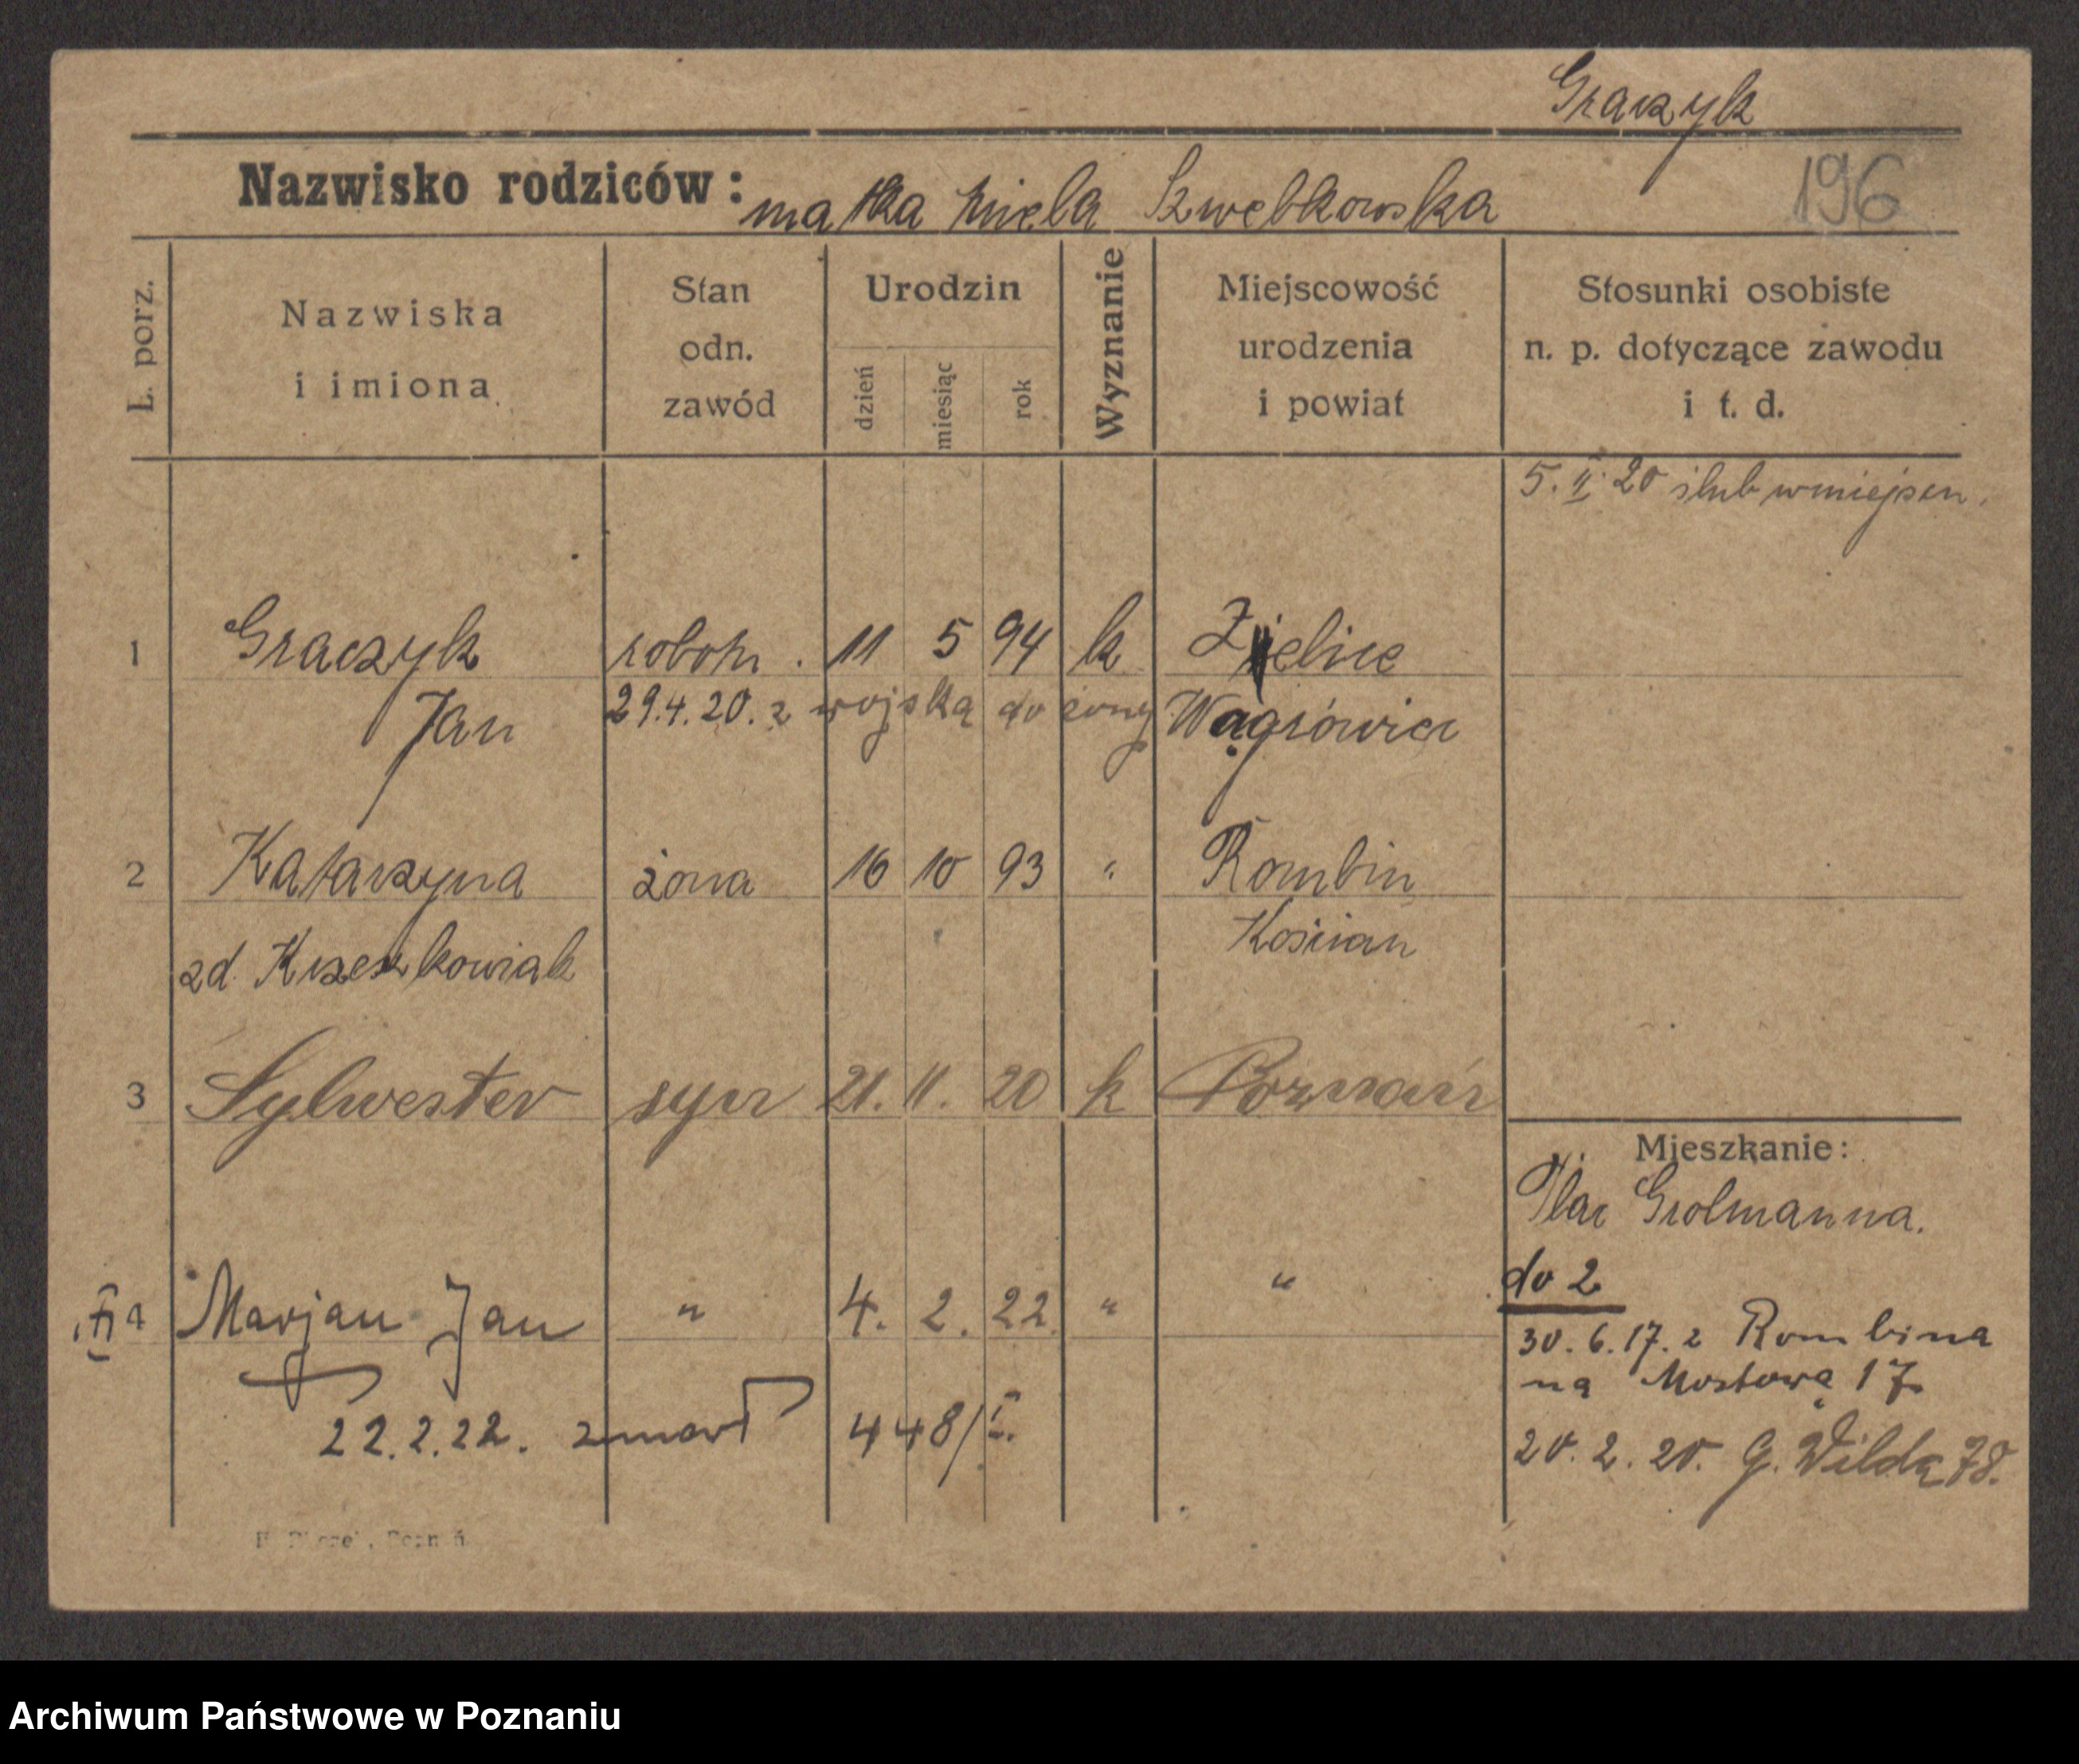 Graczyk
Nazwisko rodziców: matka Szwebkowska
196
L. porz.
Nazwiska i imiona
Stan odn. zawód
Urodzin
dzień miesiąc rok
Wyznanie
Miejscowość urodzenia i powiat
Stosunki osobiste n. p. dotyczące zawodu i t. d.
5. II. 20 ślub w miejscu.
1 Graczyk robotn. 11 5 94 k Zielice
Jan 29.4.20. z wojska do żony Wągrówiec
2 Katarzyna żona 16 10 93 " Rombin
zd. Krzeszkowiak Kościan
3 Sylwester syn 21. 11. 20 k Poznań
Mieszkanie:
Plac Grolmanna.
do 2
4 Marjan Jan " 4. 2. 22. " "
30. 6. 17. z Rombina
na Mostową 17
22.2.22. zmarł 448/I.
20. 2. 20. G. Wildą 78.
Archiwum Państwowe w Poznaniu